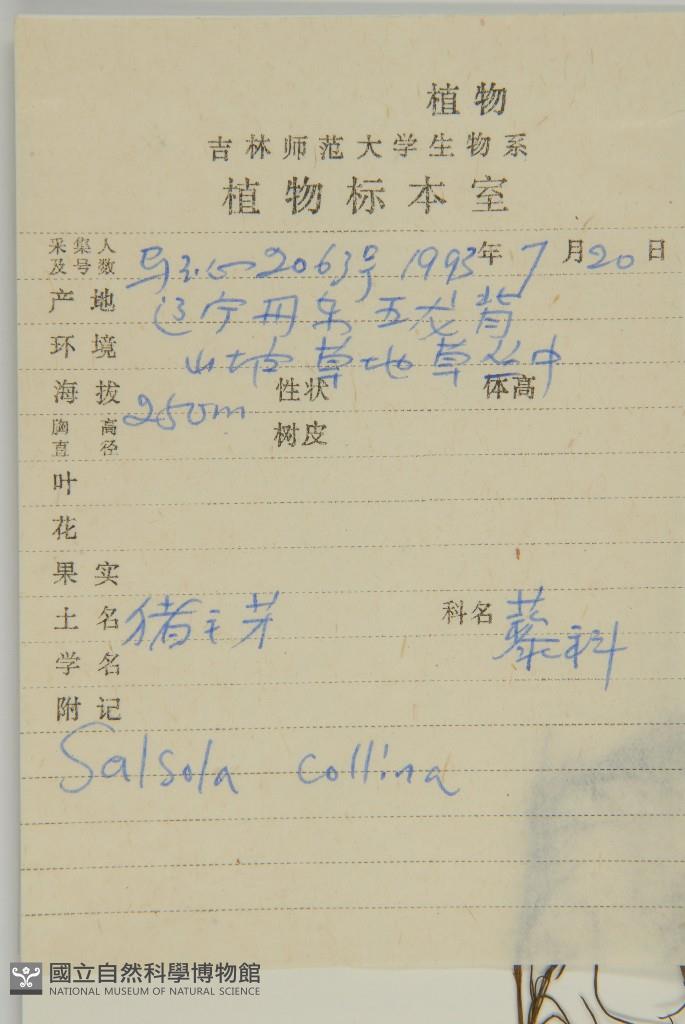 植物
吉林师范大学生物系
植物标本室
采集人及号数 2063号 1993年7月20日
产地 辽宁丹东五龙背
环境 山坡草地草丛中
海拔 250m 性状 体高
胸高直径 树皮
叶
花
果实
土名 猪毛芽 科名 藜科
学名
附记
Salsola collina
國立自然科學博物館
NATIONAL MUSEUM OF NATURAL SCIENCE